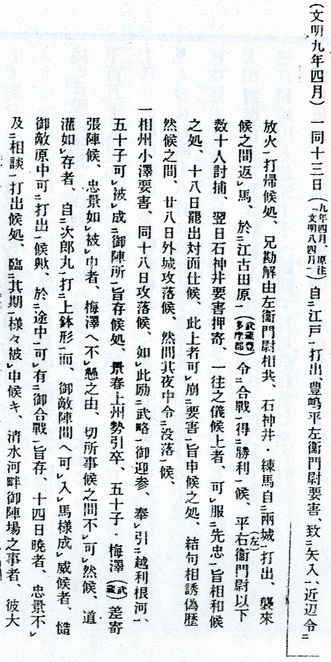 (文明九年四月) 一同十三日(九年四月、原註文明八四月)自ニ江戸一打出、豊嶋平左衛門尉要害、致ニ矢入一、近辺令ニ
放火一打帰候処、兄勘解由左衛門尉相共、石神井・練馬自ニ両城一打出、襲来
候之間返レ馬、於ニ江古田原一(武蔵豊多摩郡)令ニ合戦一得ニ勝利一候、平右(左)衛門尉以下
数十人討捕、翌日石神井要害押寄、一往之儀候上者、可レ服ニ先忠一旨相和候
之処、十八日罷出対面仕候、此上者可レ崩ニ要害一旨申候之処、結句相誘偽歴
然候之間、廿八日外城攻落候、然間其夜中令ニ没落一候、
一相州小澤要害、同十八日攻落候、如レ此励ニ武略一御迎参、奉レ引ニ越利根河一、
五十子可レ被レ成ニ御陣所一旨存候処、景春上州勢引卒、五十子・梅澤(武蔵)差寄
張陣候、忠景如レ被レ申者、梅澤へ不レ懸之由、切所事候之間不レ可レ然候、道
灌如レ存者、自ニ次郎丸一打ニ上鉢形一而、御敵陣間へ可レ入レ馬様成レ威候者、慥
御敵原中可ニ打出一候歟、於ニ途中一可レ有ニ御合戦一旨存、十四日暁者、忠景不レ
及ニ相談一打出候処、臨ニ其期一様々被レ申候キ、清水河畔御陣場之事者、彼大